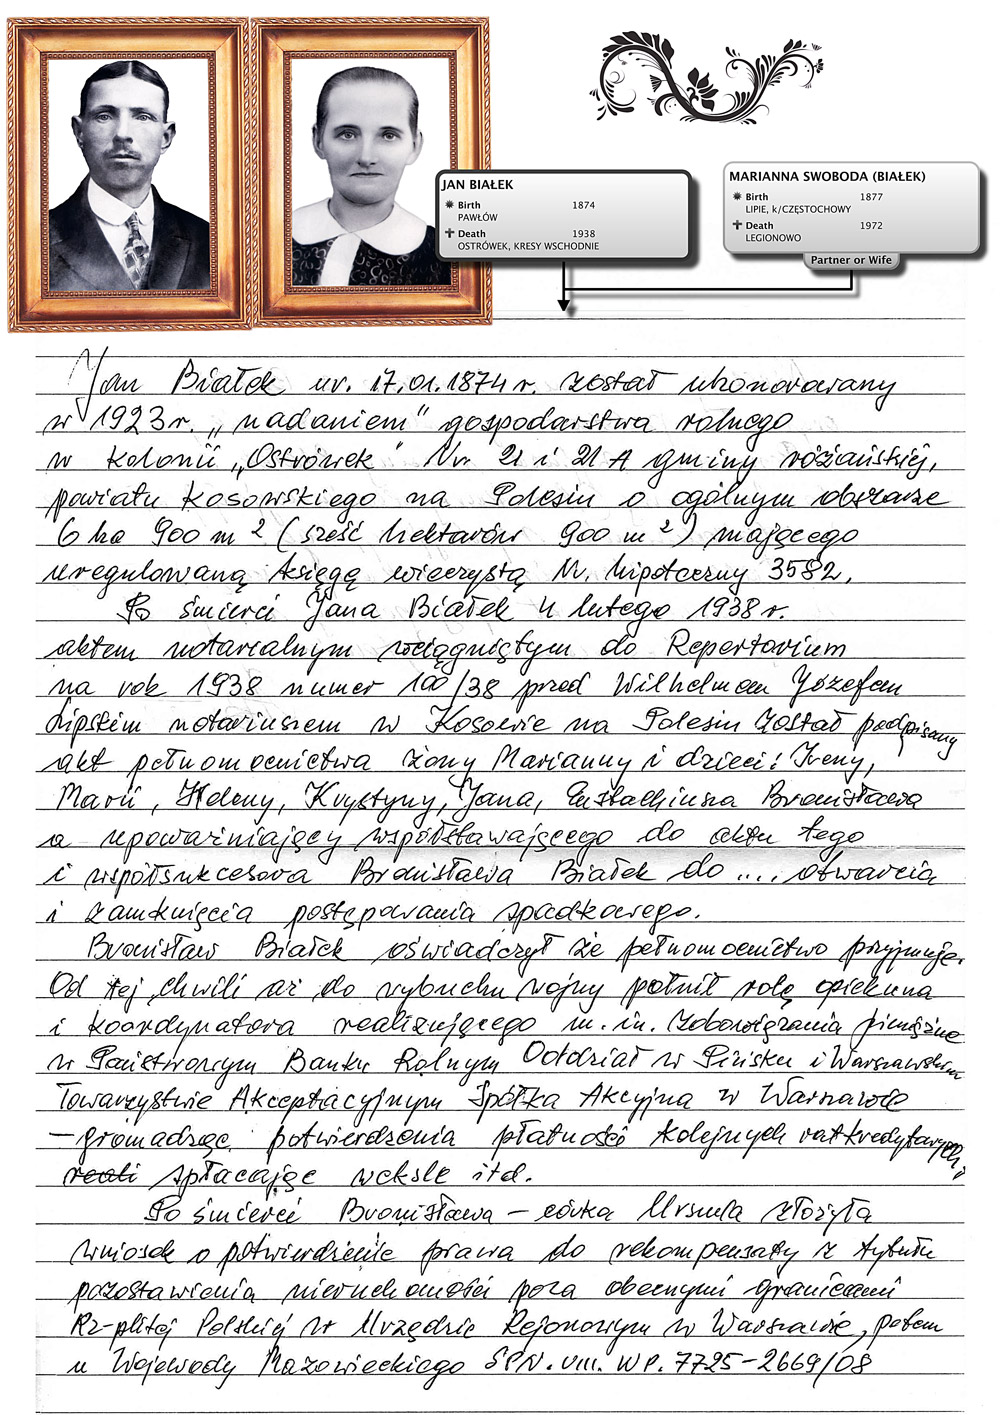 JAN BIAŁEK
Birth 1874
PAWŁÓW
Death 1938
OSTRÓWEK, KRESY WSCHODNIE
MARIANNA SWOBODA (BIAŁEK)
Birth 1877
LIPIE, k/CZĘSTOCHOWY
Death 1972
LEGIONOWO
Partner or Wife
Jan Białek ur. 17.01.1874 r. został uhonorowany
w 1923 r. „nadaniem" gospodarstwa rolnego
w kolonii „Ostrówek" Nr 21 i 21 A gminy różańskiej,
powiatu Kosowskiego na Polesiu o ogólnym obszarze
6 ha 900 m² (sześć hektarów 900 m²) mającego
uregulowaną księgę wieczystą Nr. hipoteczny 3582.
Po śmierci Jana Białek 4 lutego 1938 r.
aktem notarialnym wciągniętym do Repertorium
na rok 1938 numer 100/38 przed Wilhelmem Józefem
Lipskim notariuszem w Kosowie na Polesiu został podpisany
akt pełnomocnictwa żony Marianny i dzieci: Ireny,
Marii, Heleny, Krystyny, Jana, Eustachiusza Bronisława
a upoważniający współstawającego do aktu tego
i współsukcesora Bronisława Białek do .... otwarcia
i zamknięcia postępowania spadkowego.
Bronisław Białek oświadczył że pełnomocnictwo przyjmuje.
Od tej chwili aż do wybuchu wojny pełnił rolę opiekuna
i koordynatora realizującego m. in. zobowiązania pieniężne
w Państwowym Banku Rolnym Oddział w Pińsku i Warszawskim
Towarzystwie Akceptacyjnym Spółka Akcyjna w Warszawie
– gromadząc potwierdzenia płatności kolejnych rat kredytowych,
spłacając weksle itd.
Po śmierci Bronisława – córka Urszula złożyła
wniosek o potwierdzenie prawa do rekompensaty z tytułu
pozostawienia nieruchomości poza obecnymi granicami
Rz-plitej Polskiej w Urzędzie Rejonowym w Warszawie, potem
u Wojewody Mazowieckiego SPN. VIII. WP. 7725-2669/08